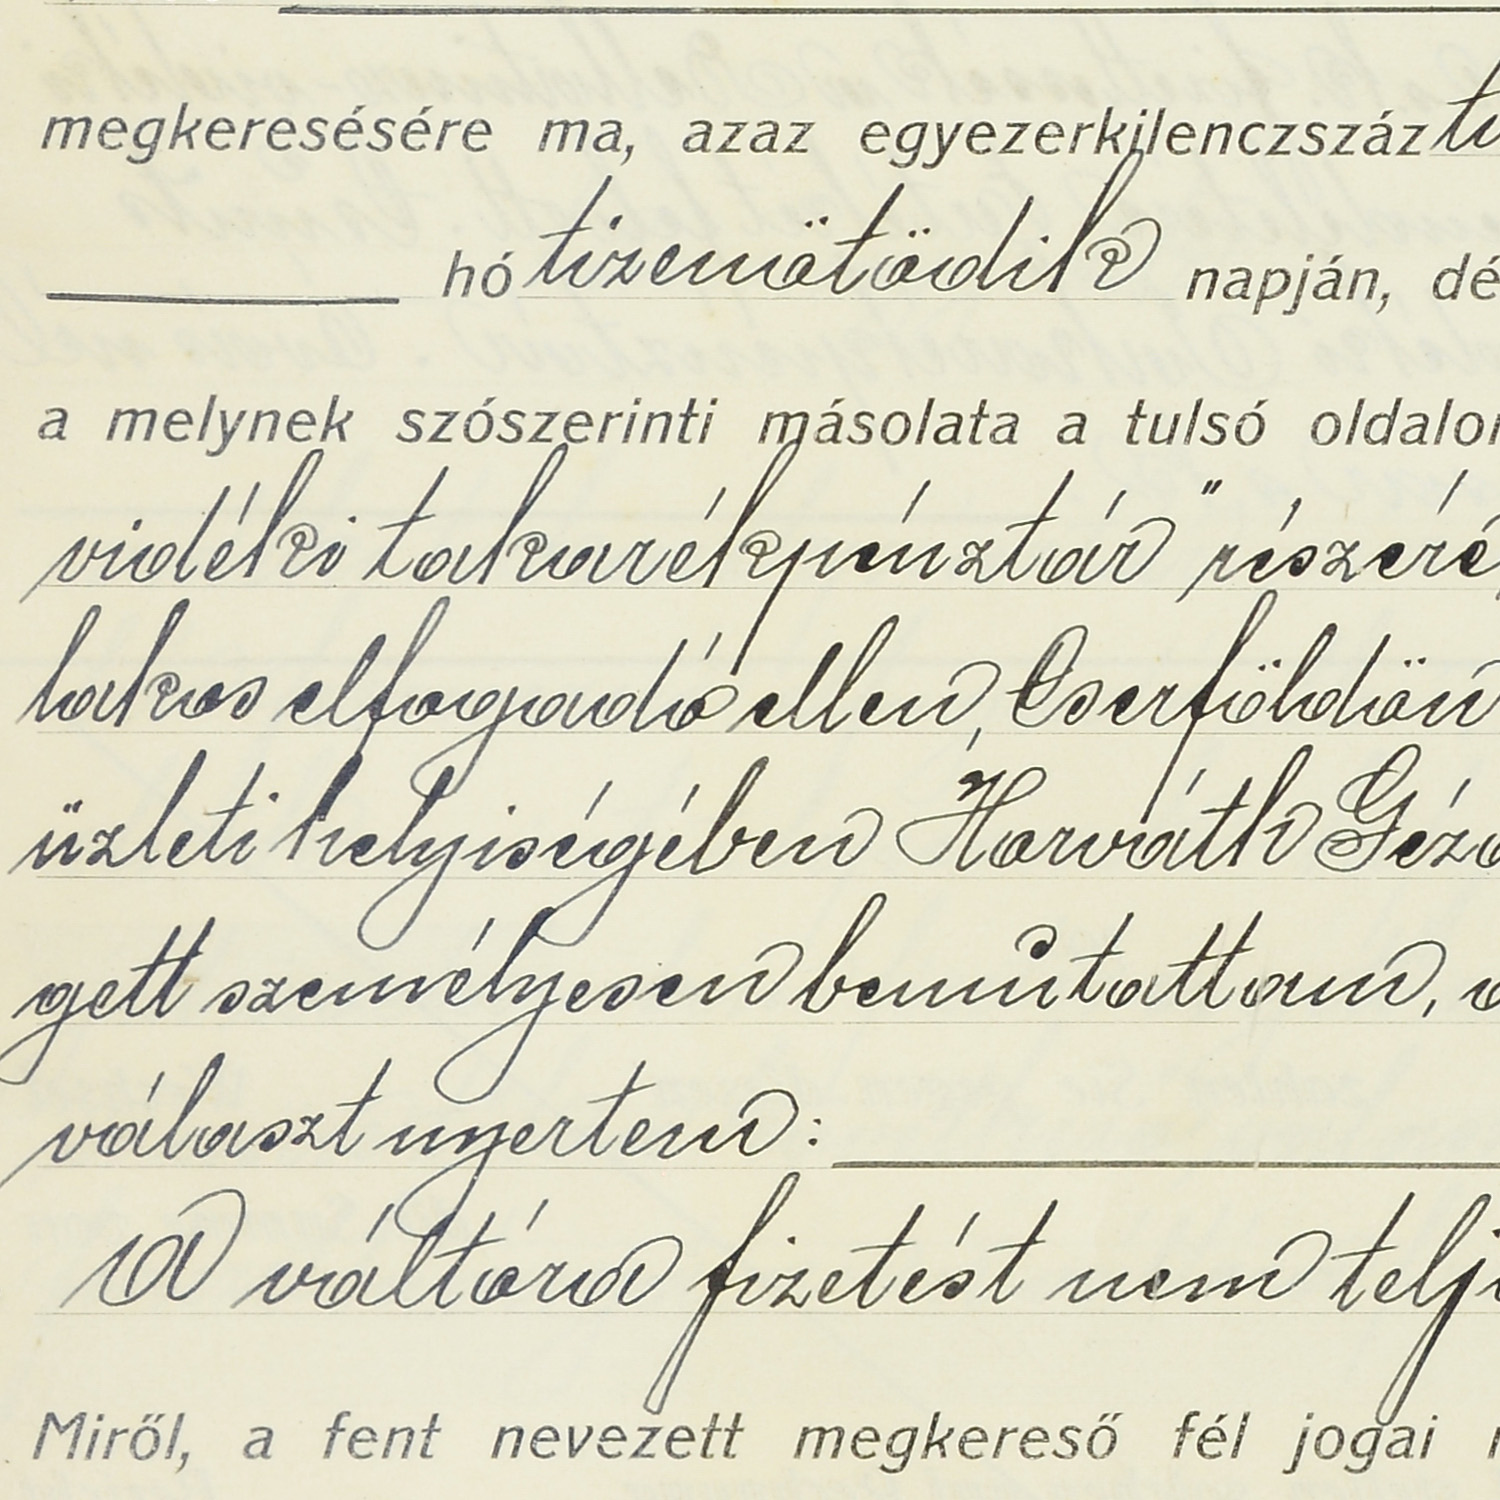 megkeresésére ma, azaz egyezerkilenczszáz
hó tizenötödik napján, dé
a melynek szószerinti másolata a tulsó oldalon
vidéki takarékpénztár" részéré
lakos elfogadó ellen, Cserföldön
üzleti helyiségében Horváth Géza
gett személyesen bemutattam, a
választ nyertem:
A váltóra fizetést nem telje
Miről, a fent nevezett megkereső fél jogai